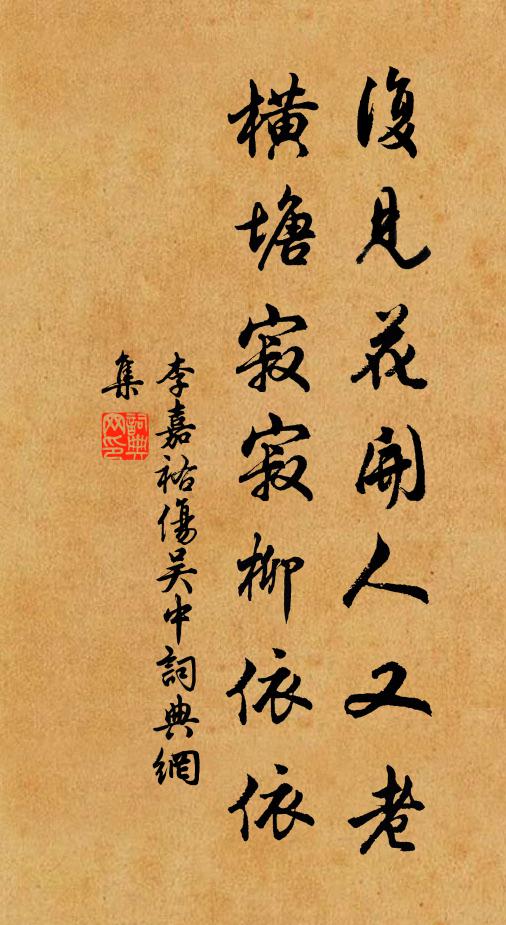 復見花開人又老
橫塘寂寂柳依依
李嘉祐傷吳中詞典網
集
詞典網印